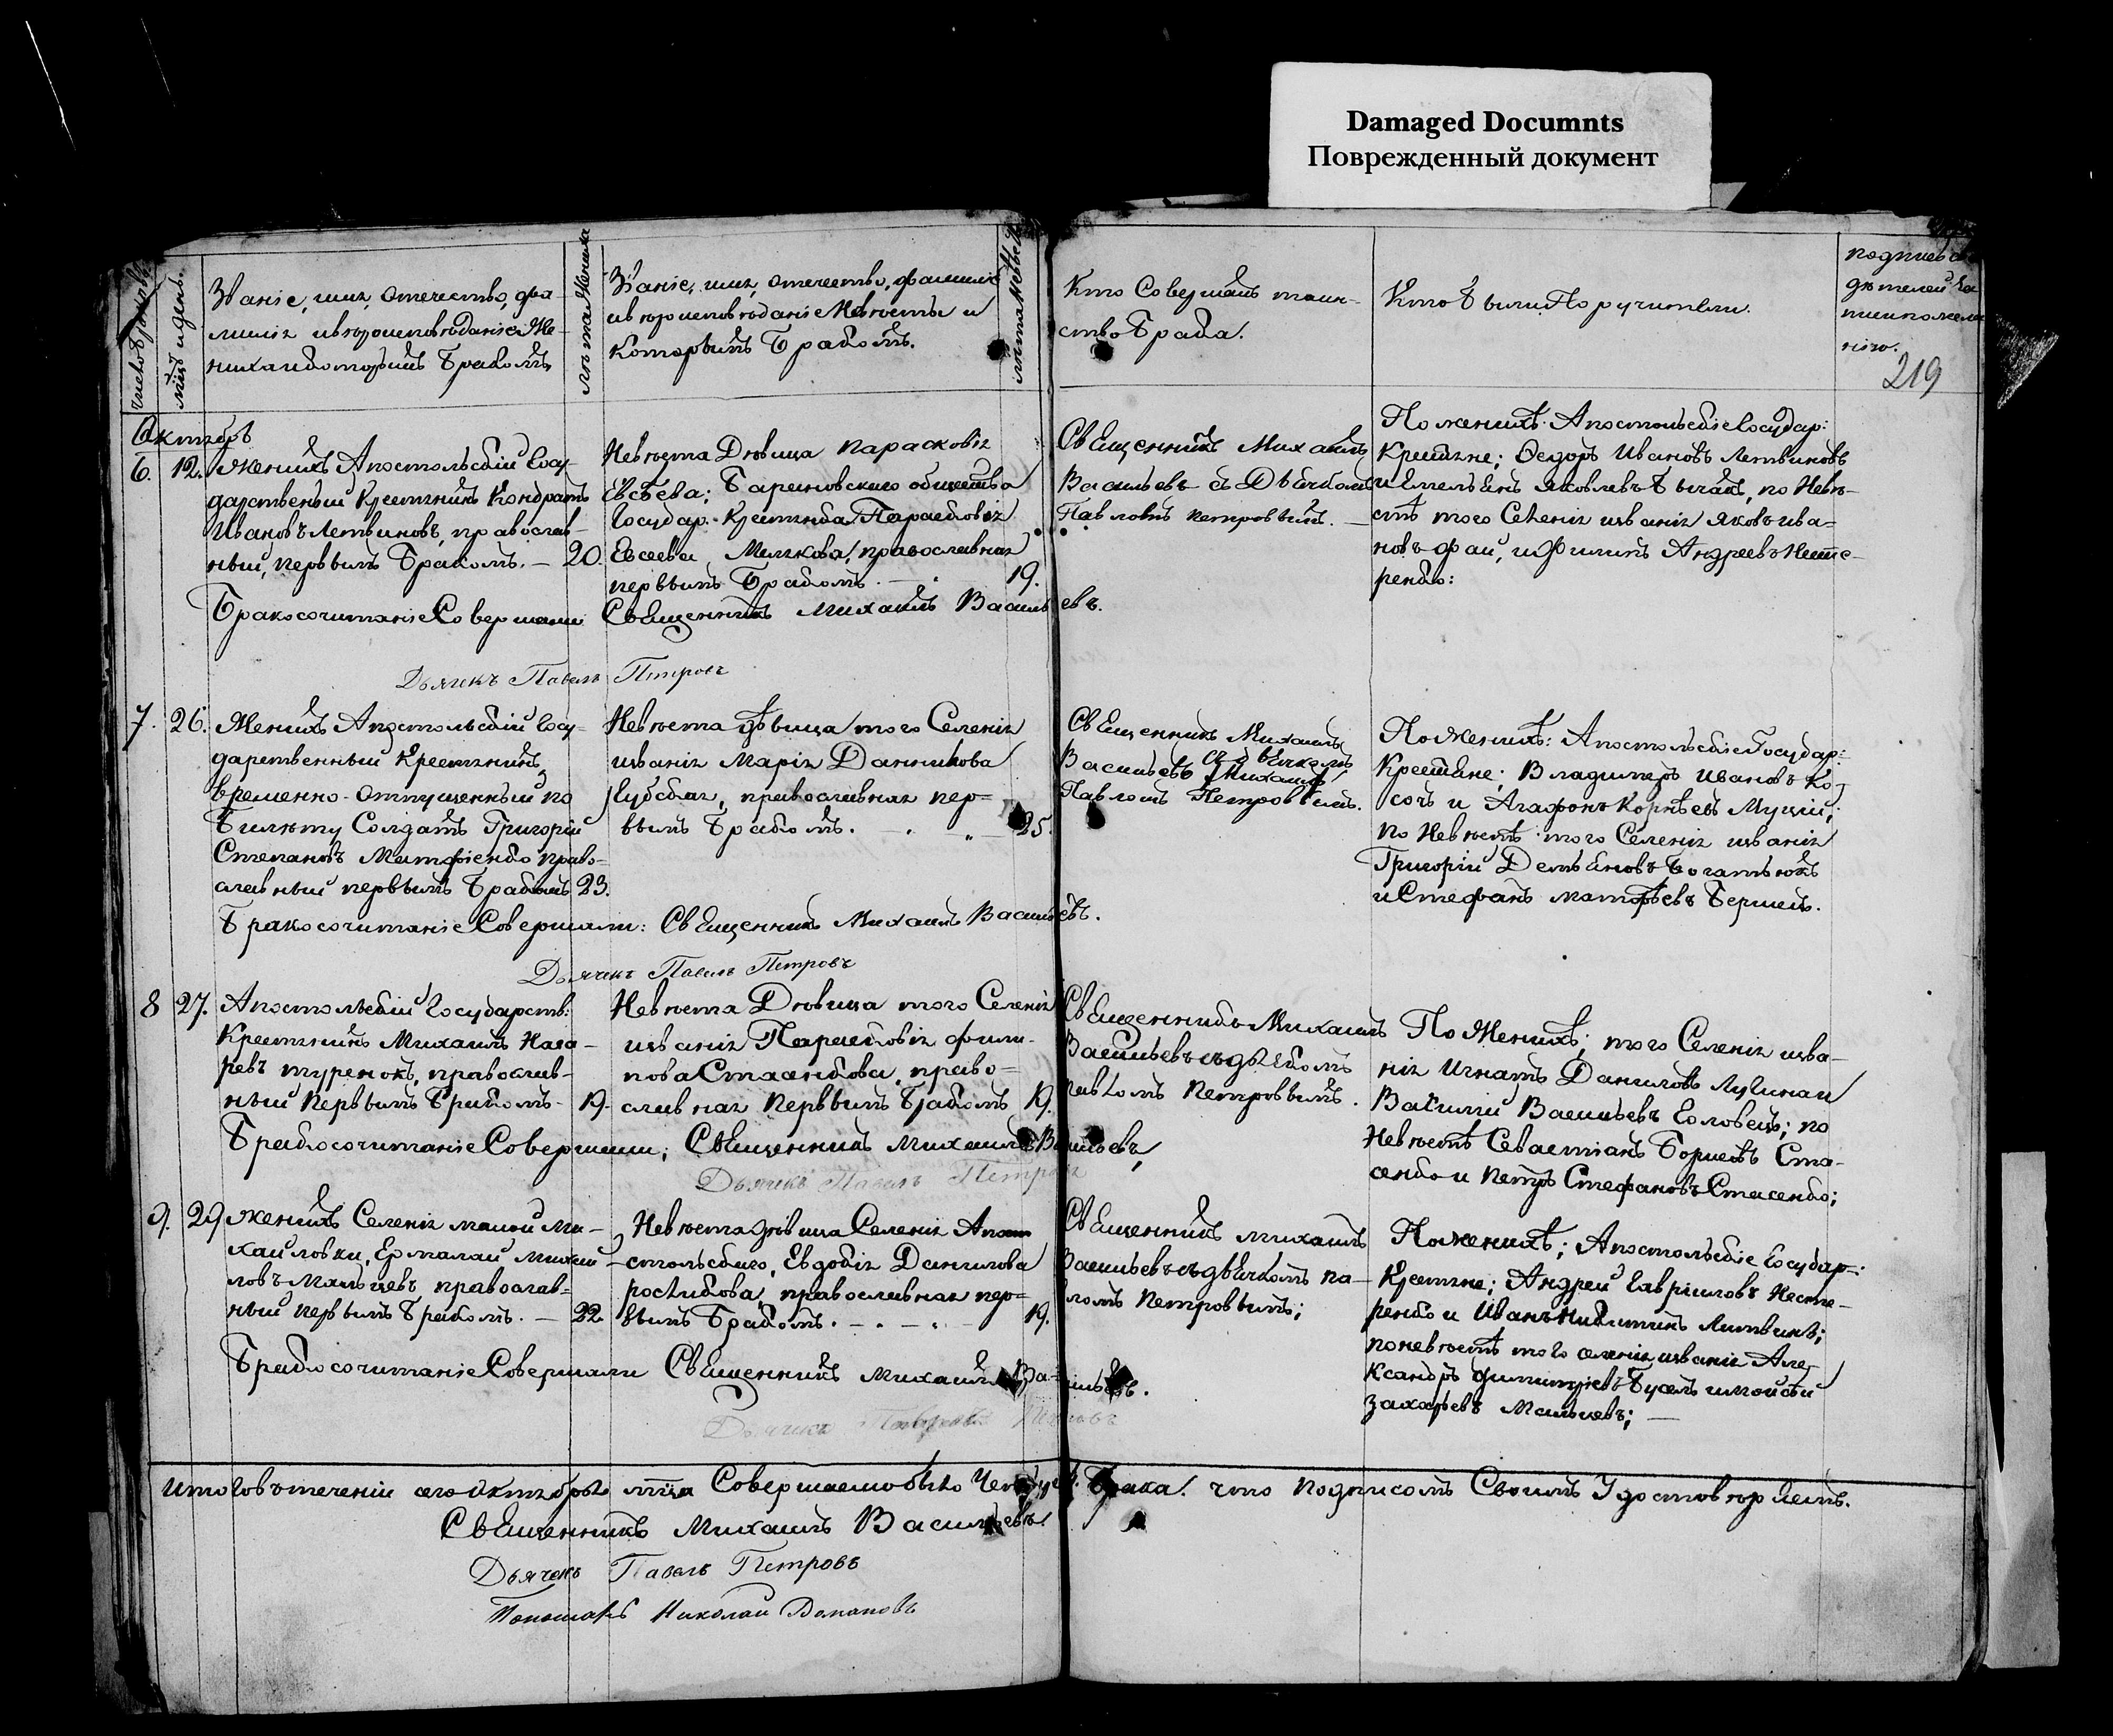 Damaged Documnts
Поврежденный документ
Званіе, имя, отечество, фа-
милія и вѣроисповѣданіе Же-
ниха и которымъ Бракомъ
лѣта Жениха
Званіе, имя, отечество, фамилія
и вѣроисповѣданіе Невѣсты и
которымъ Бракомъ.
Кто Совершалъ таин-
ство Брака.
Кто были Поручители.
219
Октябрь
6. 12. Женихъ Апостольскій Госу-
дарственый Крестянинъ Кондратъ
Ивановъ Летвиновъ, православ-
ный, первымъ Бракомъ. — 20.
Невѣста Дѣвица Парасковія
Евсѣева; Бариновского общества
Государ. Крестянка Парасковія
Евсеева Малкова, православная
первымъ Бракомъ. — 19.
Священникъ Михаилъ
Васильевъ съ Дьячкомъ
Павломъ Петровымъ. —
По женихѣ. Апостольскіе Государ:
Крестяне; Ѳедоръ Ивановъ Летвиновъ
и Емельянъ Яковлевъ Бычакъ, по Невѣ-
стѣ того Селенія и званія Яковъ Ива-
новъ Фаи, и Филипъ Андреевъ Несте-
ренко:
Бракосочитаніе Совершали Священникъ Михаилъ Васильевъ.
Дьячекъ Павелъ Петровъ
7. 26. Женихъ Апостольскій Госу-
дарственный Крестянинъ,
временно-отпущенный по
Билѣту Солдатъ Григорій
Степановъ Матфіенко право-
славный первымъ Бракомъ 23.
Невѣста дѣвица того Селенія
и званія Марія Даникова
Кубская, православная пер-
вымъ Бракомъ. — 25.
Священникъ Михаилъ
Васильевъ съ дьячкомъ
Павломъ Петровымъ.
По Женихѣ: Апостольскіе Государ:
Крестяне; Владимеръ Ивановъ Ко-
сачъ и Агафонъ Корнѣевъ Муцій;
по Невѣстѣ того Селенія и званія
Григорій Демьяновъ Богатьюкъ
и Стефанъ Матфѣевъ Бершець.
Бракосочитаніе Совершали: Священникъ Михаилъ Васильевъ.
Дьячекъ Павелъ Петровъ
8 27. Апостольскій Государств:
Крестянинъ Михаилъ Наза-
ревъ Туренокъ, православ-
ный Первымъ Бракомъ — 19.
Невѣста Дѣвица того Селенія
и званія Парасковія Фили-
пова Стасенкова, право-
славная Первымъ Бракомъ 19.
Священникъ Михаилъ
Васильевъ съ дьячкомъ
Павломъ Петровымъ.
По Женихѣ; того Селенія и зва-
нія Игнатъ Даниловъ Лучинаи
Василий Васильевъ Головець; по
Невѣстѣ Севастіанъ Борисовъ Ста-
сенко и Петръ Стефановъ Стасенко;
Бракосочитаніе Совершали; Священникъ Михаилъ Васильевъ,
Дьячекъ Павелъ Петровъ
9. 29 Женихъ Селенія малой Ми-
хаиловки, Ермалай Михаи-
ловъ Мальцевъ православ-
ный первымъ Бракомъ. — 22.
Невѣста дѣвица Селенія Апо-
стольского, Евдокія Данилова
Росчикова, православная пер-
вымъ Бракомъ. — 19.
Священникъ Михаилъ
Васильевъ съ дьячкомъ Па-
вломъ Петровымъ;
По женихѣ; Апостольскіе Государ:
Крестяне; Андрей Гавриловъ Несте-
ренко и Иванъ Никитинъ Литвинъ;
по невѣстѣ того селенія и званія Але-
ксандръ Димитріевъ Бусель и Моисей
Захарьевъ Мальцевъ; —
Бракосочитаніе Совершали Священникъ Михаилъ Васильевъ.
Дьячекъ Павелъ Петровъ
Итого въ теченіи сего Октября мца Совершаемо было Четыре Брака. что подписомъ Своимъ Удостовѣряемъ.
Священникъ Михаилъ Васильевъ
Дьячекъ Павелъ Петровъ
Пономарь Николай Романовъ